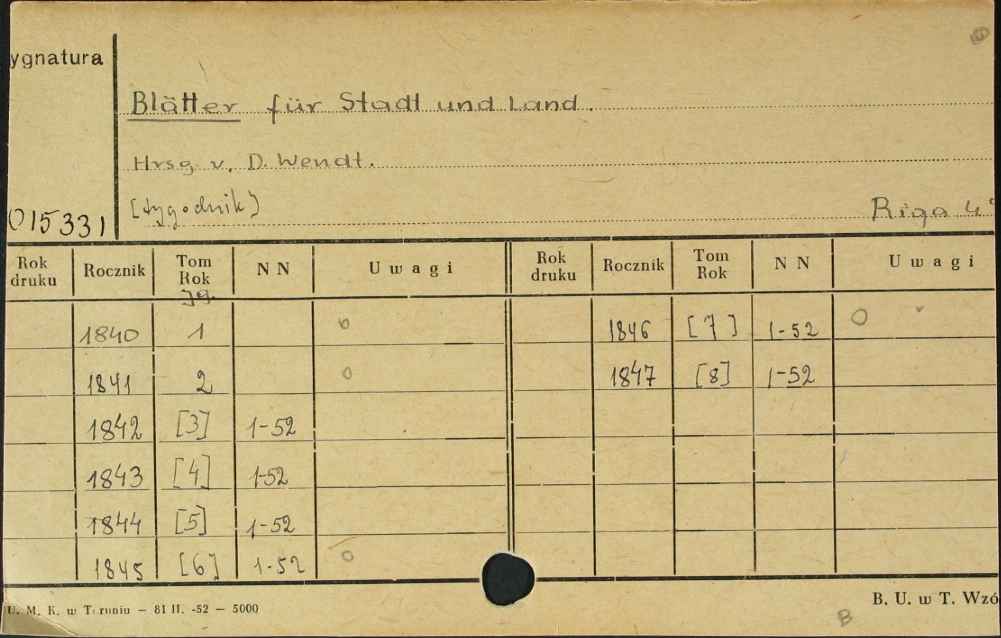 ygnatura
Blätter für Stadt und Land.
Hrsg. v. D. Wendt.
[tygodnik]
015331
Riga 4°
Rok druku Rocznik Tom Rok NN Uwagi Rok druku Rocznik Tom Rok NN Uwagi
Jg.
1840 1 0 1846 [7] 1-52 0
1841 2 0 1847 [8] 1-52
1842 [3] 1-52
1843 [4] 1-52
1844 [5] 1-52
1845 [6] 1-52 0
U. M. K. w Toruniu — 81 II. -52 — 5000
B. U. w T. Wzó
B